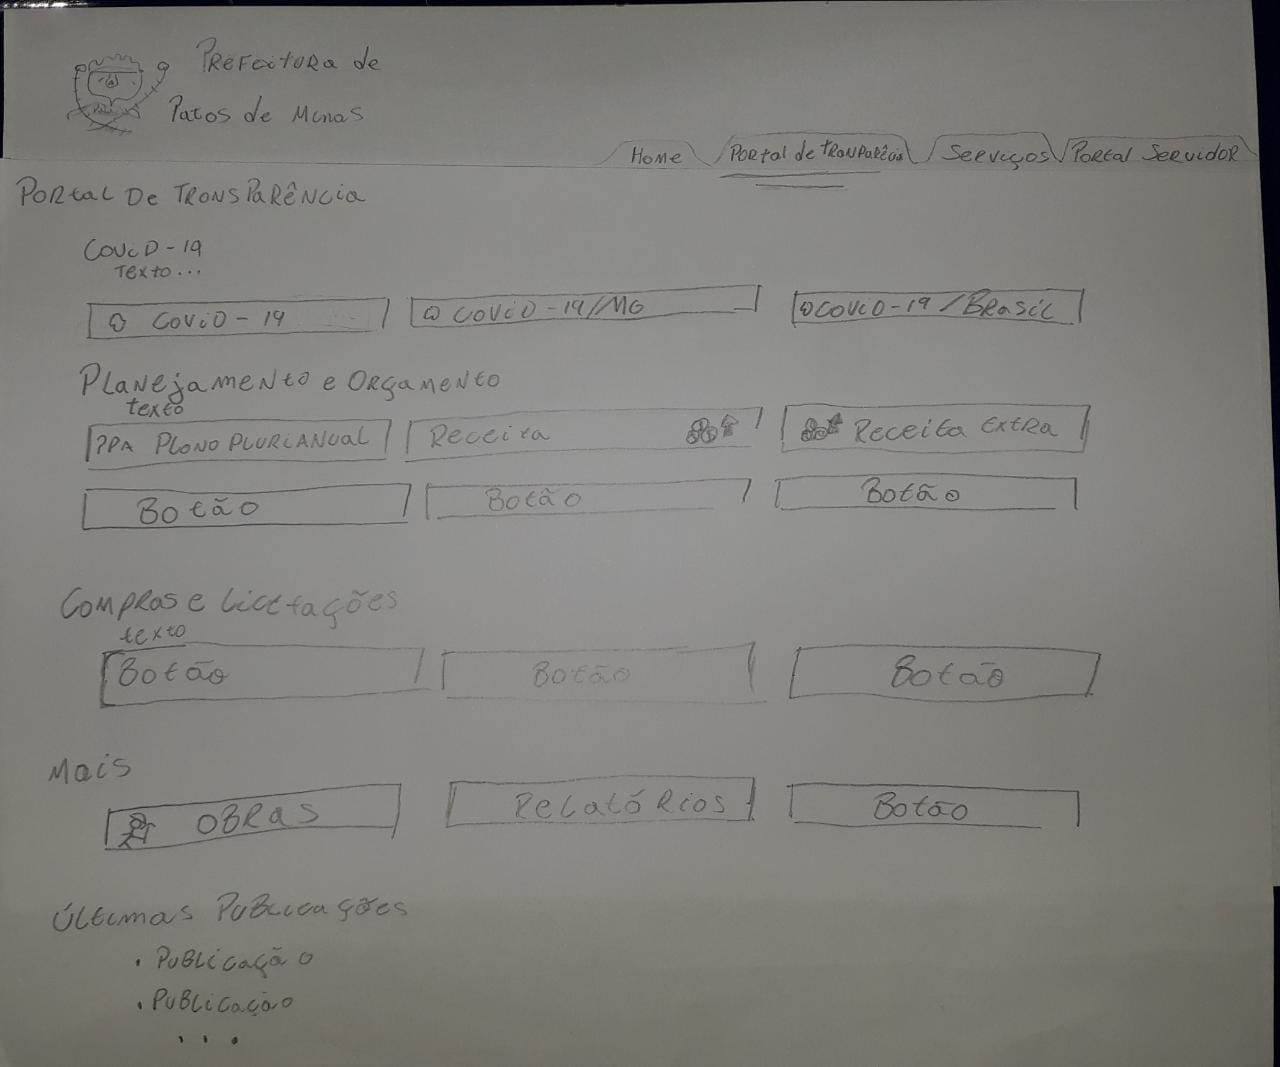 PREFEITURA de
Patos de Minas
Home
PORtal de TRANSPARÊNCIA
SERVIÇOS
PORtal SERVIDOR
PORtaL DE TRANSPARÊNCIA
COVID-19
Texto...
COVID-19
COVID-19/MG
COVID-19/BRASIL
PLANEJAMENTO e ORÇAMENTO
texto
PPA PLANO PLURIANUAL
Receita
Receita EXtRA
Botão
Botão
Botão
COMPRAS e Licitações
texto
Botão
Botão
Botão
Mais
OBRAS
RELatóRios
Botão
ÚLTIMAS PUBLICAÇÕES
• PUBLICAÇÃO
• PUBLICAÇÃO
...